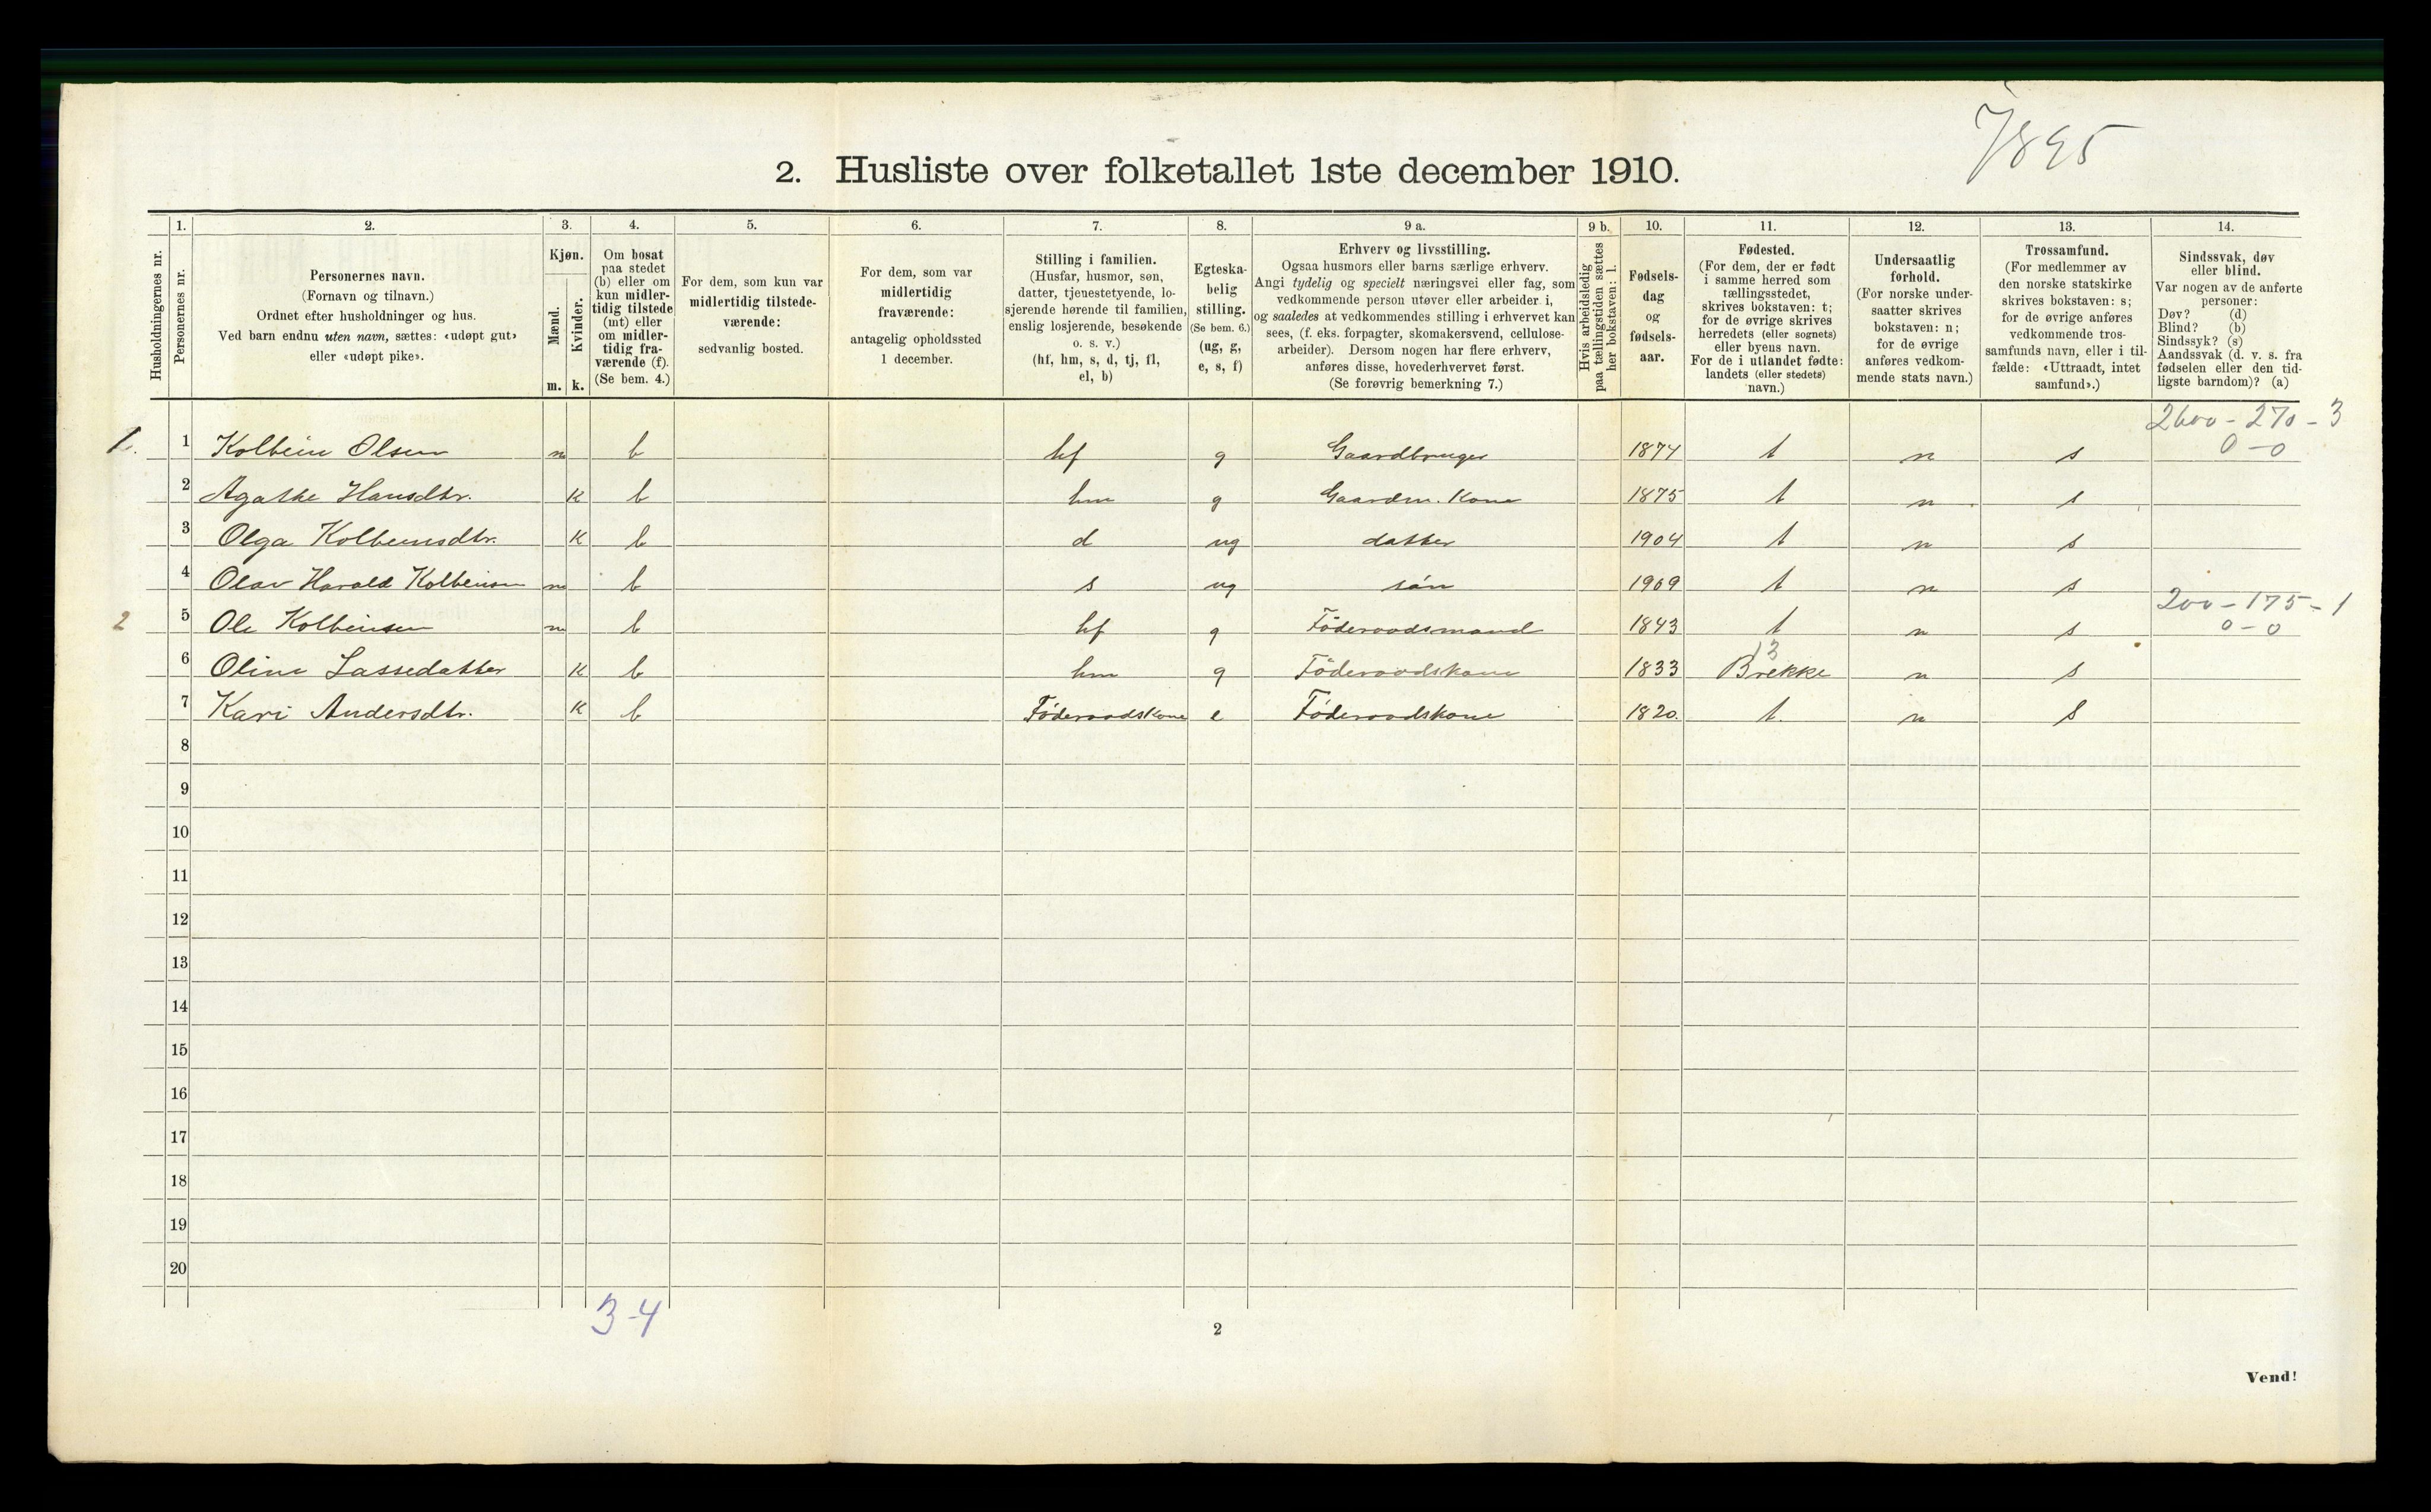 7895
2. Husliste over folketallet 1ste december 1910.
Husholdningernes nr.
1.
Personernes nr.
2.
Personernes navn.
(Fornavn og tilnavn.)
Ordnet efter husholdninger og hus.
Ved barn endnu uten navn, sættes: «udøpt gut»
eller «udøpt pike».
3.
Kjøn.
Mænd.
Kvinder.
m. k.
4.
Om bosat
paa stedet
(b) eller om
kun midler-
tidig tilstede
(mt) eller
om midler-
tidig fra-
værende (f).
(Se bem. 4.)
5.
For dem, som kun var
midlertidig tilstede-
værende:
sedvanlig bosted.
6.
For dem, som var
midlertidig
fraværende:
antagelig opholdssted
1 december.
7.
Stilling i familien.
(Husfar, husmor, søn,
datter, tjenestetyende, lo-
sjerende hørende til familien,
enslig losjerende, besøkende
o. s. v.)
(hf, hm, s, d, tj, fl,
el, b)
8.
Egteska-
belig
stilling.
(Se bem. 6.)
(ug, g,
e, s, f)
9 a.
Erhverv og livsstilling.
Ogsaa husmors eller barns særlige erhverv.
Angi tydelig og specielt næringsvei eller fag, som
vedkommende person utøver eller arbeider i,
og saaledes at vedkommendes stilling i erhvervet kan
sees, (f. eks. forpagter, skomakersvend, cellulose-
arbeider). Dersom nogen har flere erhverv,
anføres disse, hovederhvervet først.
(Se forøvrig bemerkning 7.)
9 b.
Hvis arbeidsledig
paa tællingstiden sættes
her bokstaven: l.
10.
Fødsels-
dag
og
fødsels-
aar.
11.
Fødested.
(For dem, der er født
i samme herred som
tællingsstedet,
skrives bokstaven: t;
for de øvrige skrives
herredets (eller sognets)
eller byens navn.
For de i utlandet fødte:
landets (eller stedets)
navn.)
12.
Undersaatlig
forhold.
(For norske under-
saatter skrives
bokstaven: n;
for de øvrige
anføres vedkom-
mende stats navn.)
13.
Trossamfund.
(For medlemmer av
den norske statskirke
skrives bokstaven: s;
for de øvrige anføres
vedkommende tros-
samfunds navn, eller i til-
fælde: «Uttraadt, intet
samfund».)
14.
Sindssvak, døv
eller blind.
Var nogen av de anførte
personer:
Døv? (d)
Blind? (b)
Sindssyk? (s)
Aandssvak (d. v. s. fra
fødselen eller den tid-
ligste barndom)? (a)
2600 - 270 - 3
0 - 0
1. 1 Kolbein Olsen m b hf g Gaardbruger 1874 t n s
2 Agathe Hansdtr. K b hm g Gaardm. Kone 1875 t n s
3 Olga Kolbeinsdtr. K b d ug datter 1904 t n s
4 Olav Harald Kolbeinsen m b s ug són 1909 t n s
200 - 175 - 1
0 - 0
2 5 Ole Kolbeinsen m b hf g Föderaadsmand 1843 t n s
13
6 Oline Lassedatter K b hm g Föderaadskone 1833 Brekke n s
7 Kari Andersdtr. K b Föderaadskone e Föderaadskone 1820. t. n s
8
9
10
11
12
13
14
15
16
17
18
19
20
3-4
2
Vend!